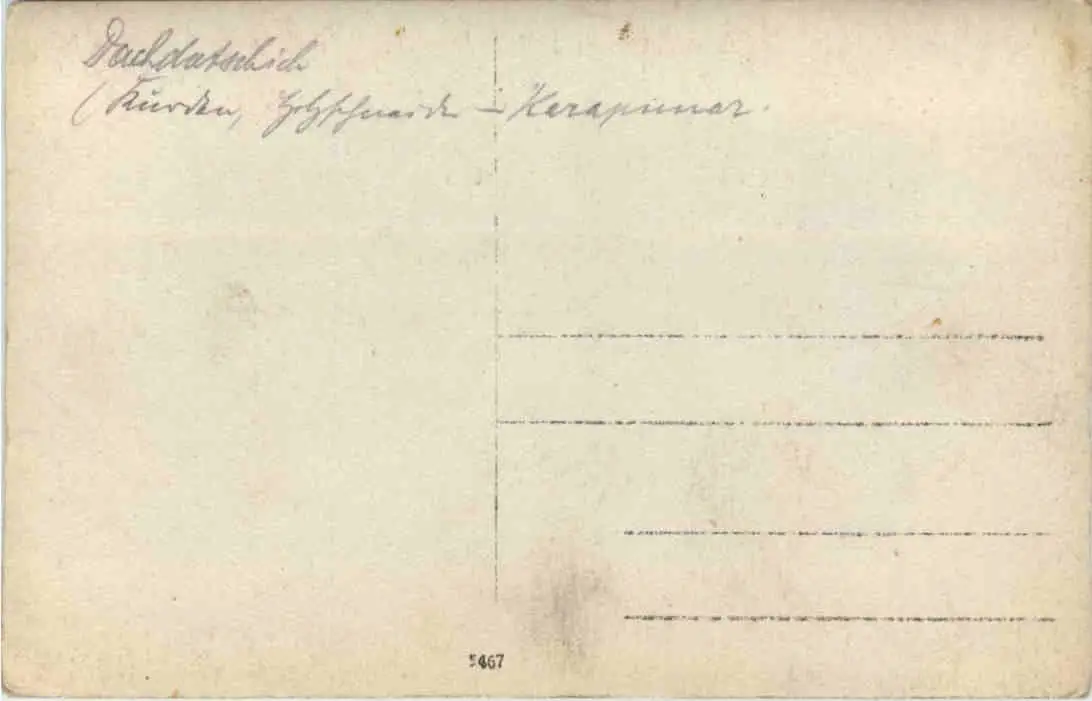 Dachdatschich
(Kurden, Holzschneider – Karapunar.
5467